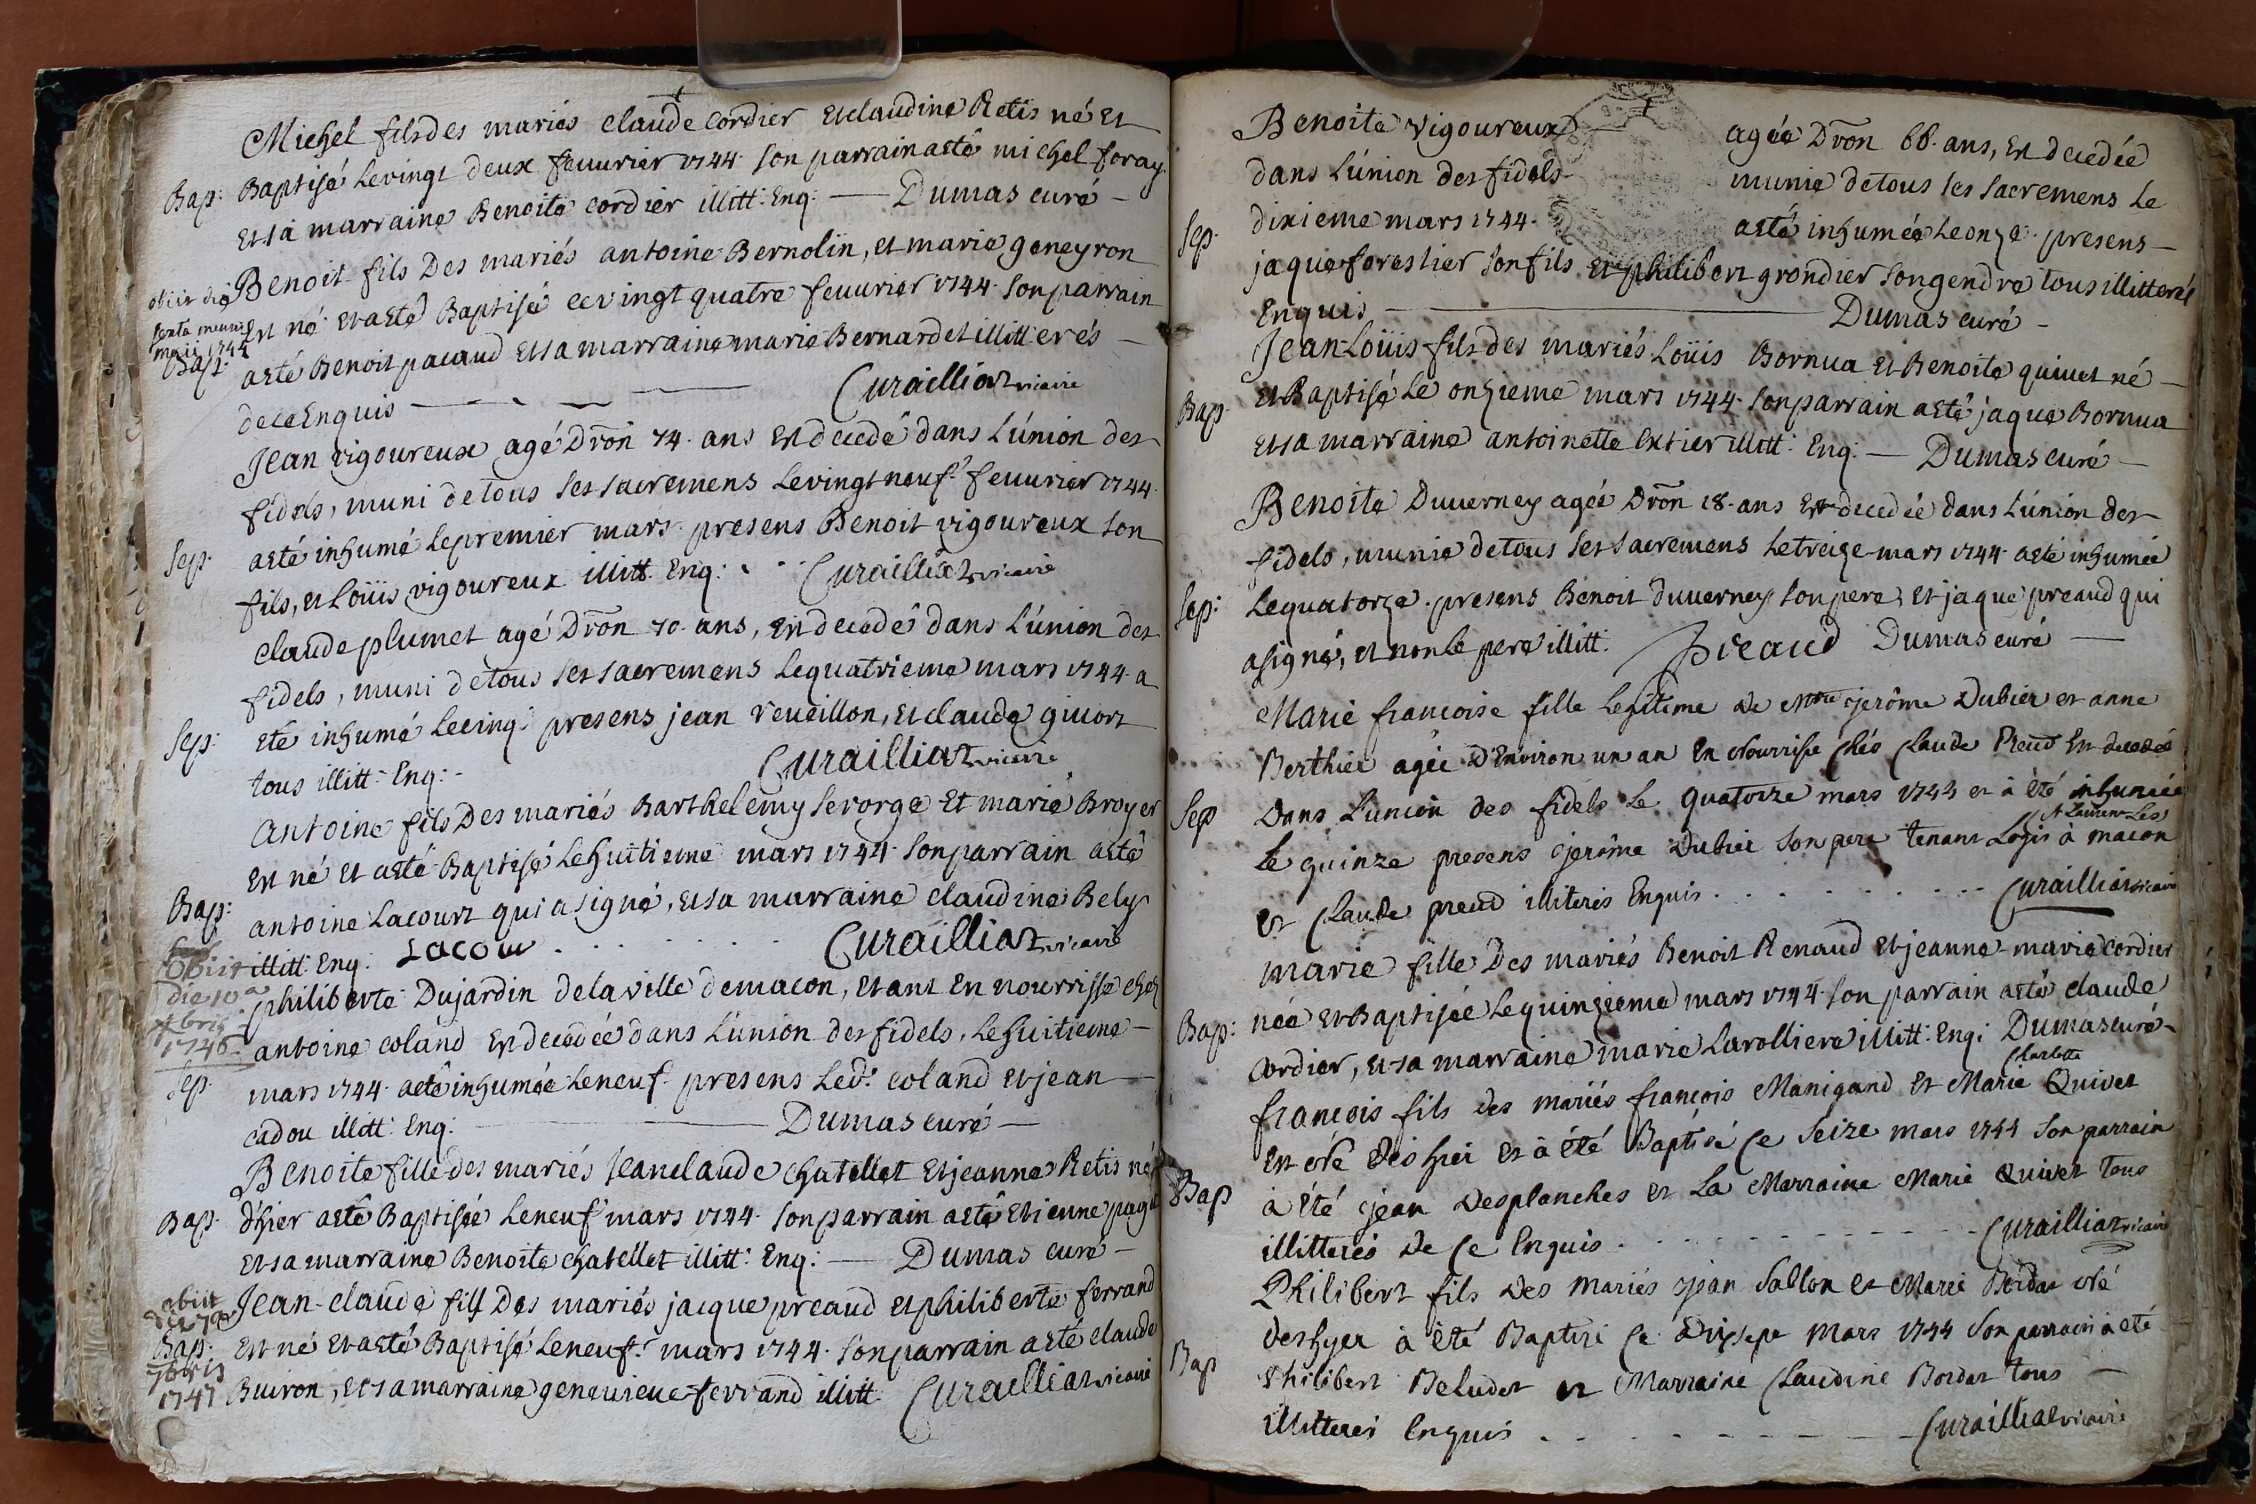 Michel fils des mariés claude cordier et claudine Retis né et
Bap: Baptisé le vingt deux feuurier 1744. son parrain a eté michel foray
et sa marraine Benoite cordier illitt: Enq: — Dumas curé —
Benoit fils Des mariés antoine Bernolin, et marie geneyron
obiit die
sexta mensis
maii 1744
Est né et a eté Baptisé ce vingt quatre feuurier 1744. son parrain
Bap: a eté Benoit pacaud et sa marraine marie Bernardet illitterés —
de ce Enquis — Curailliat vicaire
Jean vigoureux agé Dron 74. ans est decedé dans l'union des
fidels, muni de tous ses sacremens le vingt neuf feuurier 1744.
Sep: a eté inhumé le premier mars. presens Benoit vigoureux son
fils, et Loüis vigoureux illitt. Enq: Curailliat vicaire
claude plumet agé Dron 70. ans, est decedé dans l'union des
fidels, muni de tous ses sacremens le quatrieme mars 1744. a
Sep: eté inhumé le cinq. presens jean reveillon, et claude givort
tous illitt: Enq: - Curailliat vicaire
antoine fils Des mariés Barthelemy Sevorge et marie Broyer
Est né et a eté Baptisé le huitieme mars 1744. son parrain a eté
Bap: antoine Lacourt qui a signé, et sa marraine claudine Bely
illitt. Enq: Lacour Curailliat vicaire
obiit
die 10a
1746
philiberte Dujardin de la ville de macon, etant en nourrisse chez
antoine coland est decedée dans l'union des fidels, le huitieme —
Sep mars 1744. a eté inhumée le neuf. presens led: coland et jean
cadou illitt: Enq: — Dumas curé —
Benoite fille des mariés Jean claude chatellet et jeanne Retis né
Bap: d'hier a eté Baptisée le neuf mars 1744. son parrain a eté etienne page
et sa marraine Benoite chatellet illitt: Enq: — Dumas curé —
obiit
Jean-claude fils Des mariés jacque preaud et philiberte ferrand
Bap: Est né et a eté Baptisé le neuf: mars 1744. son parrain a eté claude
7bris
1747
Buiron, et sa marraine genevieve ferrand illitt. Curailliat vicaire
Benoite vigoureux agée Dron 66. ans, est decedée
dans l'union des fidels munie de tous ses sacremens le
Sep. dixieme mars 1744. a eté inhumée le onze. presens —
jaque forestier son fils et philibert grondier son gendre tous illitterés
Enquis — Dumas curé —
Jean Loüis fils des mariés Loüis Bornua et Benoite quivet né —
Bap et Baptisé le onzieme mars 1744. son parrain a eté jaque Bornua
et sa marraine antoinette Extier illitt: Enq: — Dumas curé —
Benoite Duverney agée Dron 18. ans est decedée dans l'union des
fidels, munie de tous ses sacremens le treize mars 1744. a eté inhumée
Sep: le quatorze. presens Benoit duverney son pere, et jaque preaud qui
a signé, et non le pere illitt: preaud Dumas curé —
Marie francoise fille Legitime de Mtre jerôme Dubier et anne
Berthier agée d'Environ un an En Nourrisse chés Claude Preud Est decedée
Sep Dans L'union des fidels le quatorze mars 1744 et à été inhumée
St Laurent Les
le quinze presens jerôme Dubier son pere tenant Logis à macon
et Claude preud illiterés Enquis . . . Curailliat vicaire
marie fille Des mariés Benoit Renaud et jeanne-marie cordier
Bap: née et Baptisée le quinzieme mars 1744. son parrain a eté claude
cordier, et sa marraine marie Larolliere illitt: Enq: Dumas curé —
Charlotte
francois fils des mariés francois Manigand et Marie Quivet
Est né Dés hier et à été Baptisé Ce Seize mars 1744 son parrain
Bap à été jean Desplanches et La Marraine Marie Quivet tous
illitterés de Ce Enquis . . . Curailliat vicaire
Philibert fils des mariés jean Sallon et Marie Bordat né
Deshyer à été Baptisé Ce Dixsept mars 1744 Son parrain à eté
Bap Philibert Beludet et Marraine Claudine Bordat tous —
illitterés Enquis . . . Curailliat vicaire